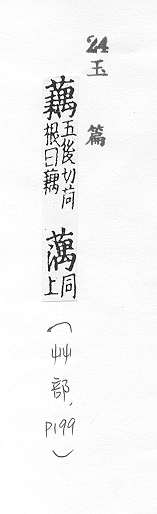 24
玉篇
藕五後切荷根曰藕 蕅同上
(艸部, P199)